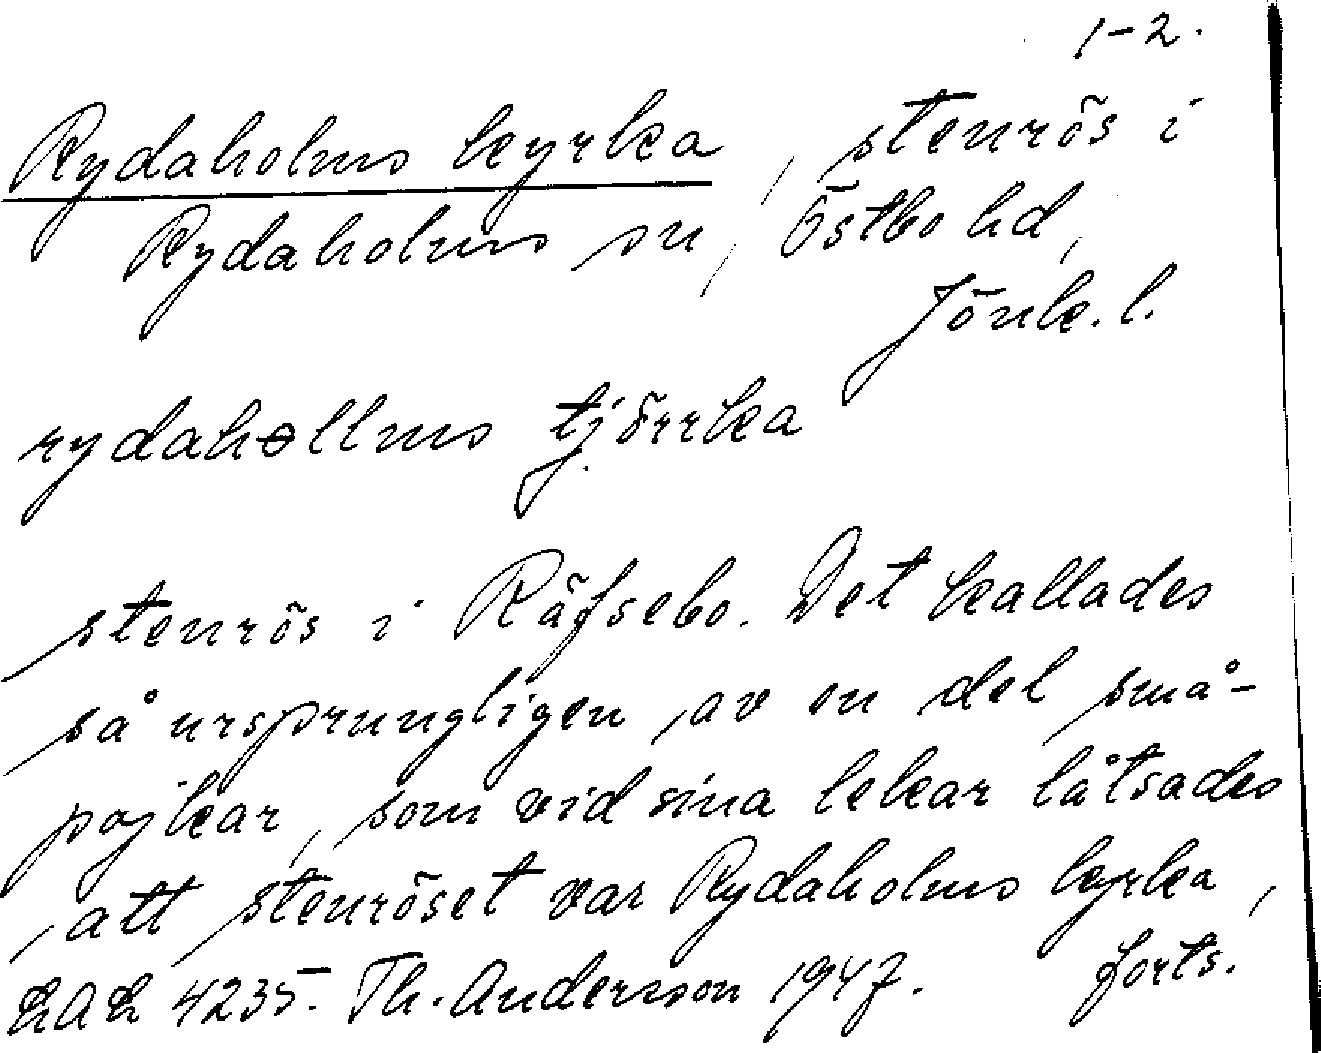 1-2.
Rydaholms kyrka, stenrös i
Rydaholms sn, Östbo hd,
Jönk. l.
rydahollms tjörrka
stenrös i Räfsebo. Det kallades
så ursprungligen av en del små-
pojkar, som vid sina lekar låtsades
att stenröset var Rydaholms kyrka,
LAL 4235. Th. Andersson 1947. forts.